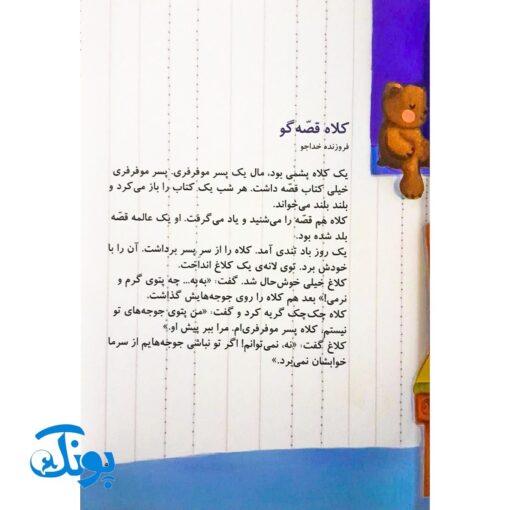 کلاه قصّه‌گو
فروزنده خداجو
یک کلاه پشمی بود، مال یک پسر موفرفری. پسر موفرفری
خیلی کتاب قصّه داشت. هر شب یک کتاب را باز می‌کرد و
بلند بلند می‌خواند.
کلاه هم قصّه را می‌شنید و یاد می‌گرفت. او یک عالمه قصّه
بلد شده بود.
یک روز باد تندی آمد. کلاه را از سر پسر برداشت. آن را با
خودش برد. توی لانه‌ی یک کلاغ انداخت.
کلاغ خیلی خوش‌حال شد. گفت: «به‌به... چه پتوی گرم و
نرمی!» بعد هم کلاه را روی جوجه‌هایش گذاشت.
کلاه چک‌چک گریه کرد و گفت: «من پتوی جوجه‌های تو
نیستم، کلاه پسر موفرفری‌ام. مرا ببر پیش او.»
کلاغ گفت: «نه، نمی‌توانم! اگر تو نباشی جوجه‌هایم از سرما
خوابشان نمی‌برد.»
پونک